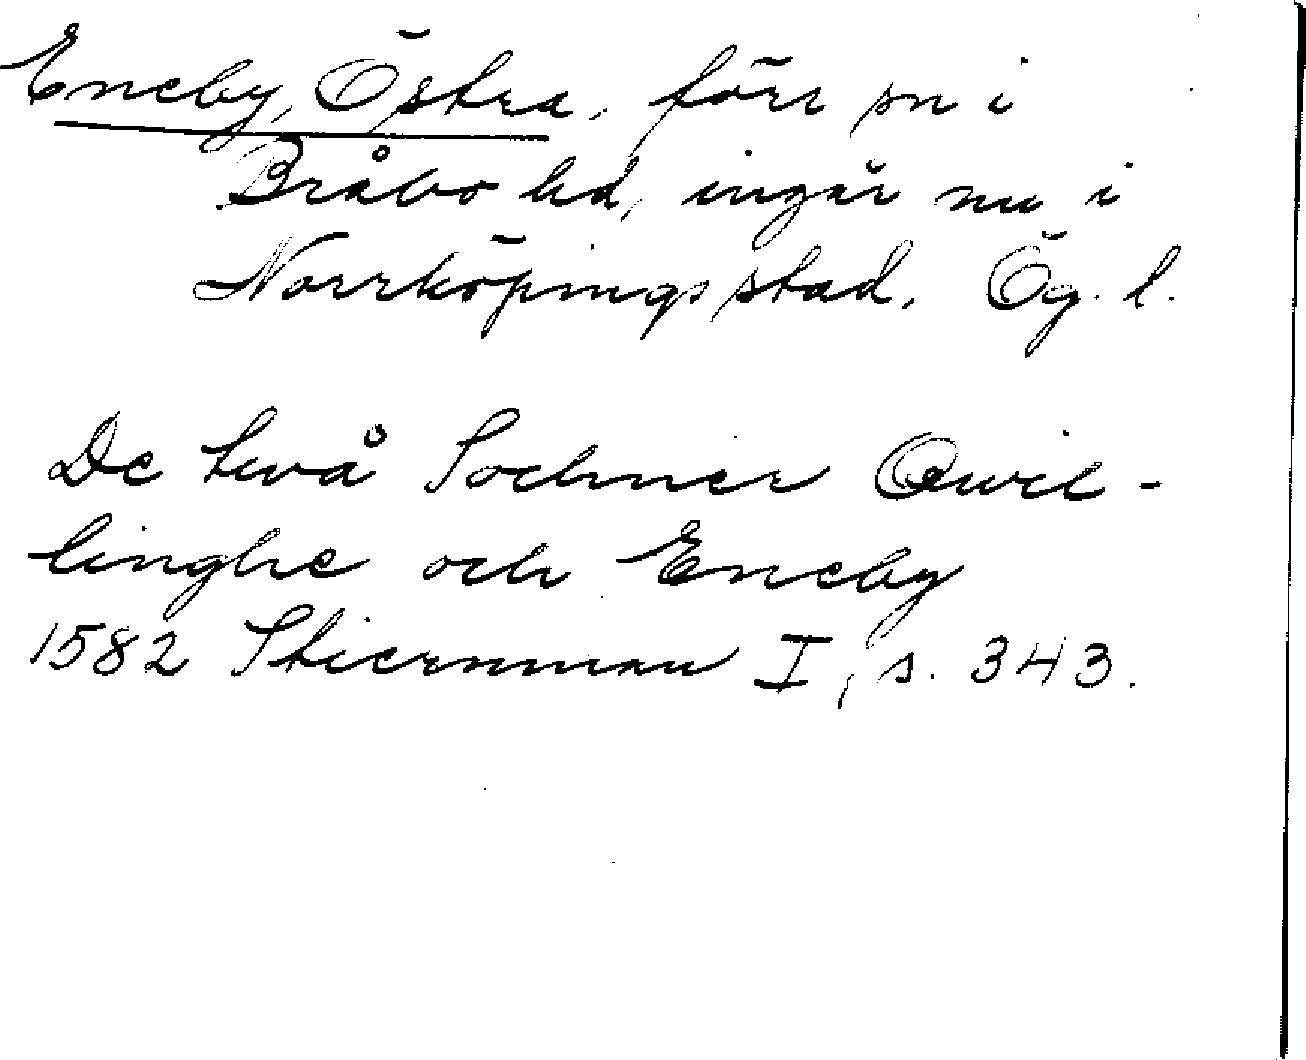 Eneby, Östra, förr sn i
Bråbo hd, ingår nu i
Norrköpings stad. Ög. l.
De twå Sochner Qwil-
linghe och Eneby
1582 Stiernman I, s. 343.